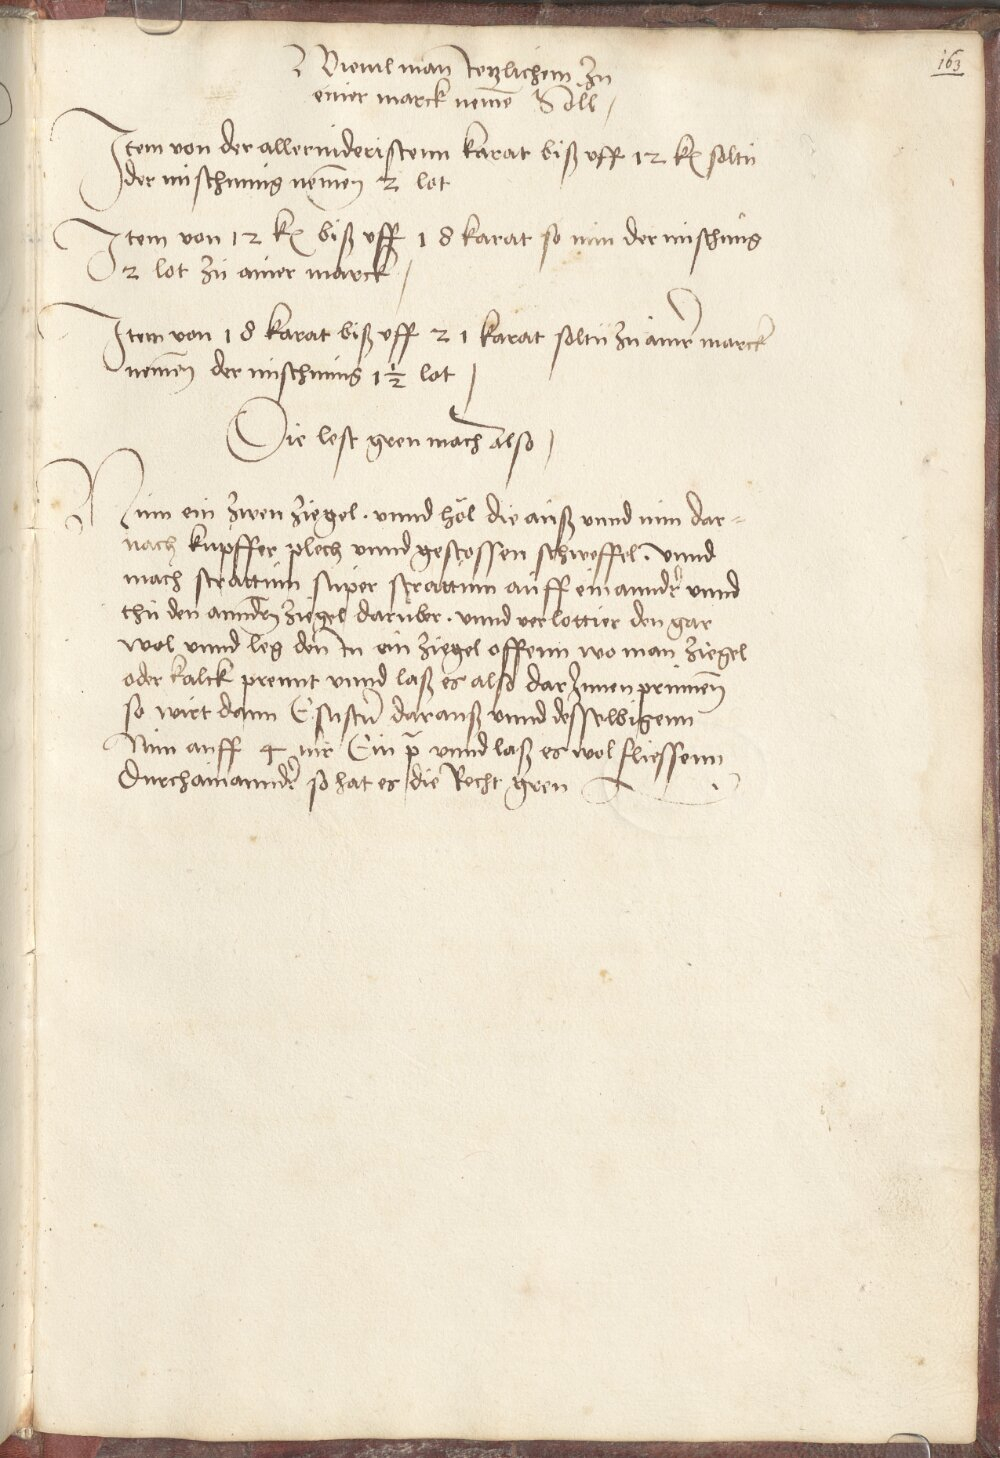 163
Wieuil man yetzlichem zu
einer marck nemē Soll
Item von der allernideristenn karat biß vff 12 k soltu
der mischung nemen 2 lot
Item von 12 k biß vff 18 karat so nim der mischūg
2 lot zu ainer marck
Item von 18 karat biß vff 21 karat soltu zu ainer marck
nemen der mischung 1½ lot
Die lest gren mach also
Nim ein zwen ziegel. vnnd höl die auß vnnd nim dar=
nach kupffer plech vnnd gestossen schweffel. vnnd
mach strattum super strattum auff einannder vnnd
thu den anndern ziegel darüber. vnnd verlottier den gar
wol vnnd leg den in ein ziegel offenn wo man ziegel
oder kalck prennt vnnd laß es also darInnen prinnen
so wirt dann Esustū darauß vnnd desselbigenn
Nim auff 4 mr Ein p vnnd laß es wol fliessenn
Durchainannder so hat es die Recht gren